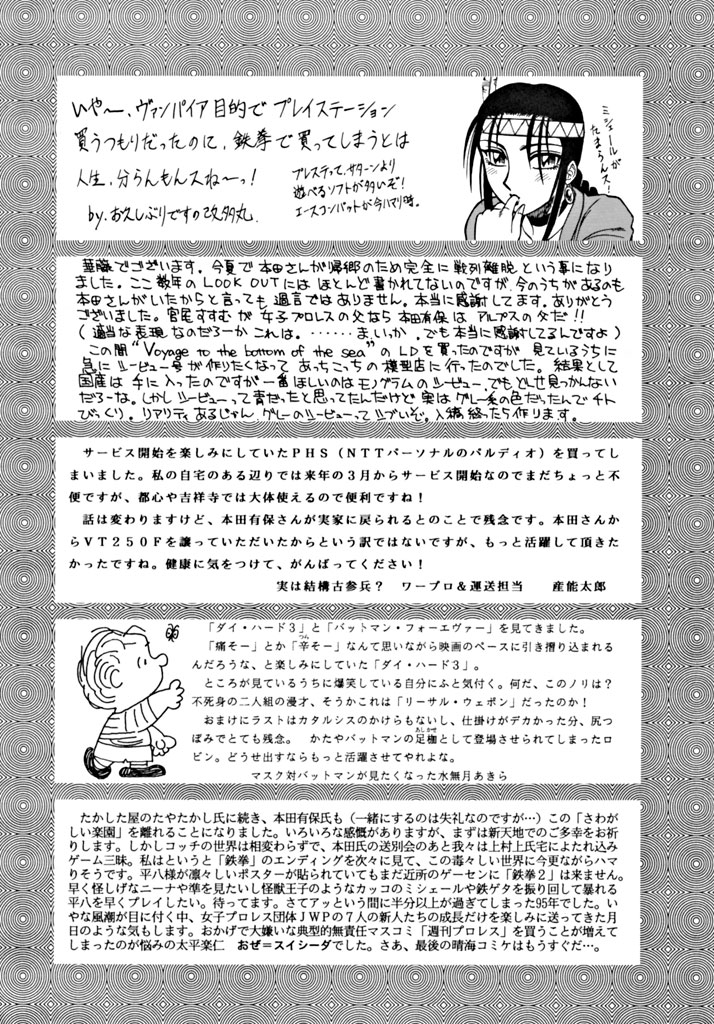 いや～、ヴァンパイア目的でプレイステーション
買うつもりだったのに、鉄拳で買ってしまうとは
人生、分らんもんスね～っ！
by.お久しぶりですの改多丸
プレステって、サターンより
遊べるソフトが多いぞ！
エースコンバットが今ハマり時。
ミシェールが
たまらんス！
華藤でございます。今夏で本田さんが帰郷のため完全に戦列離脱という事になり
ました。ここ数年のLOOK OUTにはほとんど書かれてないのですが、今のうちがあるのも
本田さんがいたからと言っても過言ではありません。本当に感謝してます。ありがとう
ございました。宮尾すすむが女子プロレスの父なら本田有保はアルプスの父だ!!
（適当な表現なのだろーかこれは。……ま、いっか。でも本当に感謝してるんですよ）
この間“Voyage to the bottom of the sea”のLDを買ったのですが見ているうちに
急にシービュー号が作りたくなってあっちこっちの模型店に行ったのでした。結果として
国産は手に入ったのですが一番ほしいのはモノグラムのシービュー、でもどしせ見つかんない
だろーな。しかしシービューって青だったと思ってたんだけど実はグレー系の色だったんでチト
びっくり。リアリティあるじゃん、グレーのシービューってシブいぞ。入稿終ったら作ります。
サービス開始を楽しみにしていたＰＨＳ（ＮＴＴパーソナルのパルディオ）を買ってし
まいました。私の自宅のある辺りでは来年の３月からサービス開始なのでまだちょっと不
便ですが、都心や吉祥寺では大体使えるので便利ですね！
話は変わりますけど、本田有保さんが実家に戻られるとのことで残念です。本田さんか
らＶＴ２５０Ｆを譲っていただいたからという訳ではないですが、もっと活躍して頂きた
かったですね。健康に気をつけて、がんばってください！
実は結構古参兵？　ワープロ＆運送担当　産能太郎
「ダイ・ハード３」と「バットマン・フォーエヴァー」を見てきました。
「痛そー」とか「辛そー」なんて思いながら映画のペースに引き摺り込まれる
つら
んだろうな、と楽しみにしていた「ダイ・ハード３」。
ところが見ているうちに爆笑している自分にふと気付く。何だ、このノリは？
不死身の二人組の漫才、そうかこれは「リーサル・ウェポン」だったのか！
おまけにラストはカタルシスのかけらもないし、仕掛けがデカかった分、尻つ
ぼみでとても残念。　かたやバットマンの足枷として登場させられてしまったロ
あしかせ
ビン。どうせ出すならもっと活躍させてやれよな。
マスク対バットマンが見たくなった水無月あきら
たかした屋のたやたかし氏に続き、本田有保氏も（一緒にするのは失礼なのですが…）この「さわが
しい楽園」を離れることになりました。いろいろな感慨がありますが、まずは新天地でのご多幸をお祈
りします。しかしコッチの世界は相変わらずで、本田氏の送別会のあと我々は上村上氏宅によたれ込み
ゲーム三昧。私はというと「鉄拳」のエンディングを次々に見て、この毒々しい世界に今更ながらハマ
りそうです。平八様が凛々しいポスターが貼られていてもまだ近所のゲーセンに「鉄拳２」は来ません。
早く怪しげなニーナや準を見たいし怪獣王子のようなカッコのミシェールや鉄ゲタを振り回して暴れる
平八を早くプレイしたい。待ってます。さてアッという間に半分以上が過ぎてしまった95年でした。いや
な風潮が目に付く中、女子プロレス団体ＪＷＰの７人の新人たちの成長だけを楽しみに送ってきた月
日のような気もします。おかげで大嫌いな典型的無責任マスコミ「週刊プロレス」を買うことが増えて
しまったのが悩みの太平楽仁　おぜ＝スイシーダでした。さあ、最後の晴海コミケはもうすぐだ…。